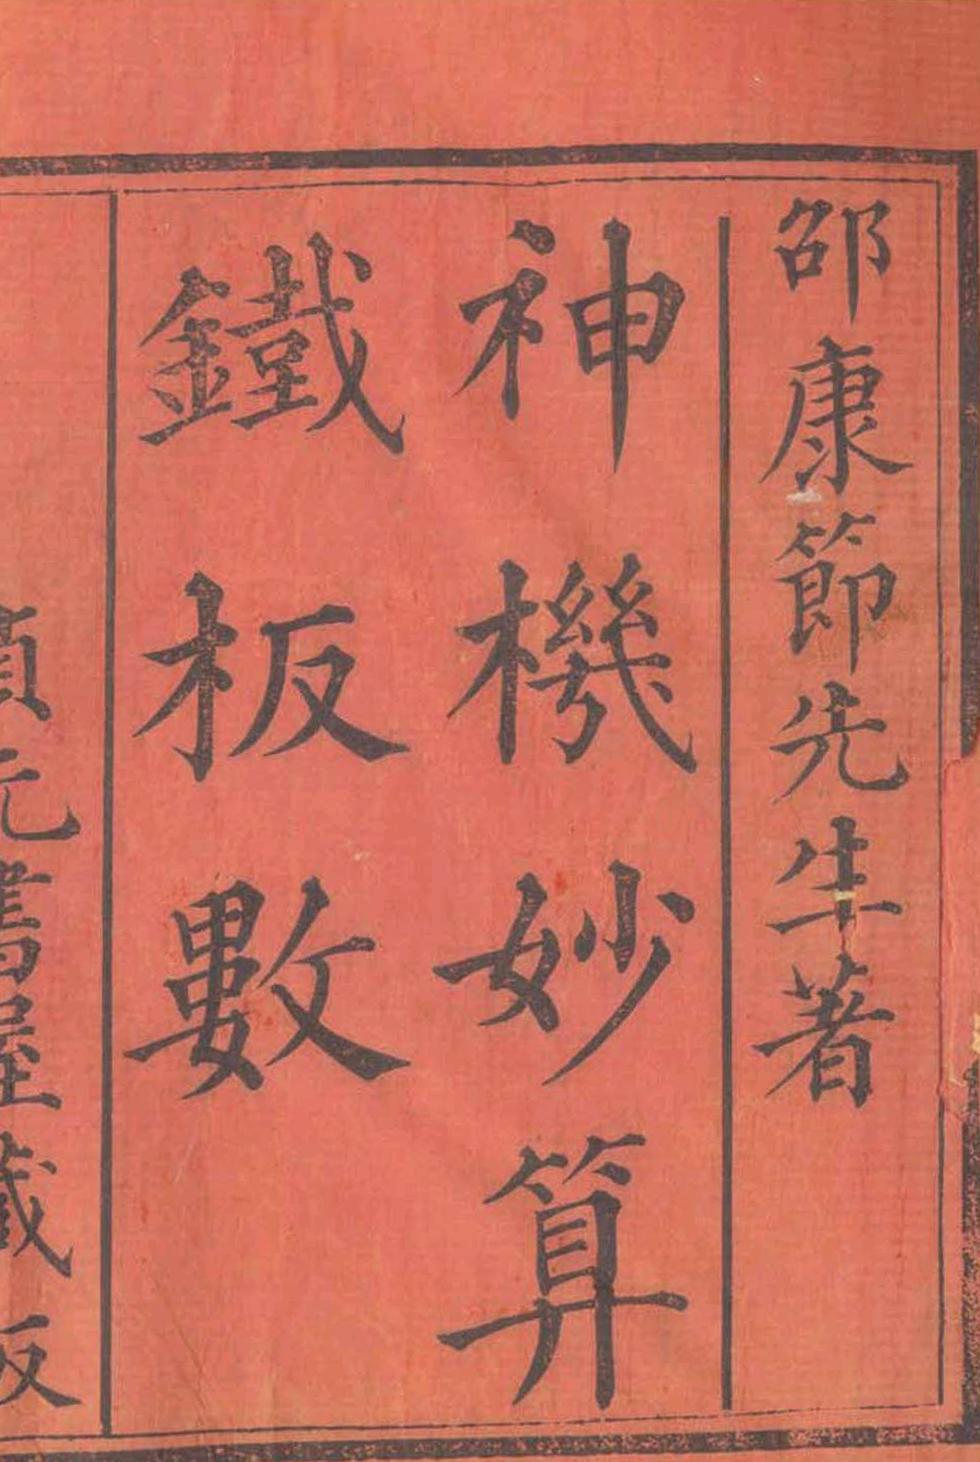 邵康節先生著
神機妙算
鐵板數
元書屋藏板